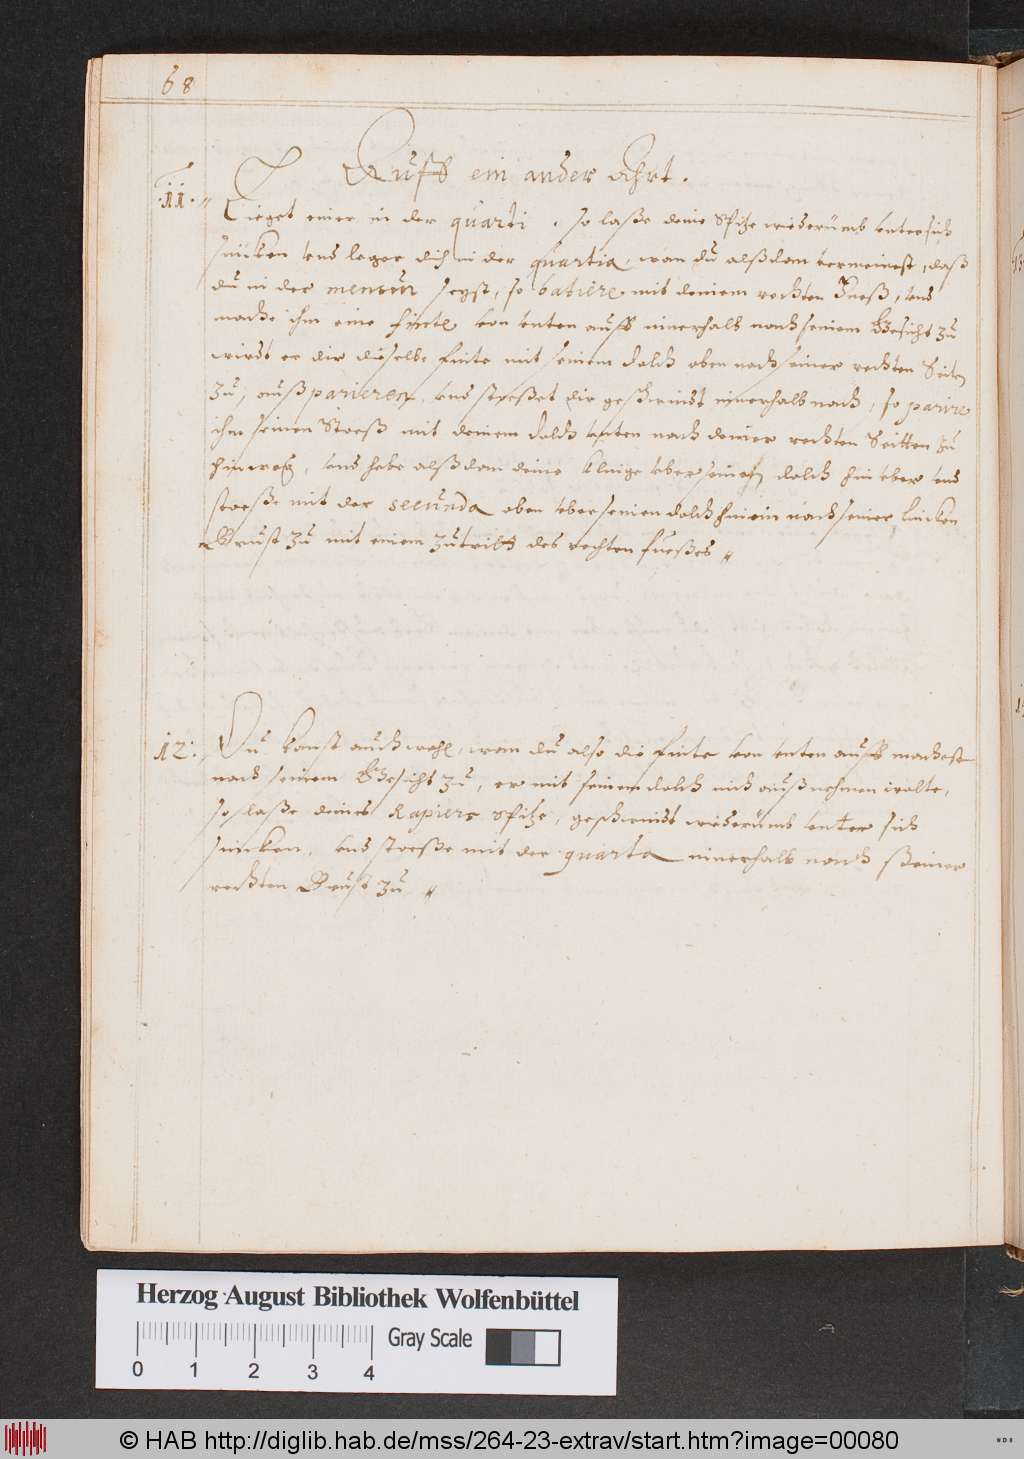 68
Auff ein ander Ahrt.
11. Lieget einer in der quarti, so laße deine Spitze wiederumb unter sich
sincken und leger dich in der quartia, wan du alßdan vermeinest, daß
du in der mensur seyst, so batiere mit deinem rechten Fueß, und
mache ihm eine finte von unten auff innerhalb nach seinem Gesicht zu
wirdt er dir dieselbe finte mit seinem dolch oben nach seiner rechten Seiten
zu, außparieren, und stoeßet dir geschwindt innerhalb nach, so parire
ihm seinen Stoeß mit deinem dolch unten nach deiner rechten Seitten zu
hinweg, und hebe alßdan deine Klinge uber seinen dolch hin uber und
stoeße mit der secunda oben uber seinen dolch hinein nach seiner lincken
Brust zu mit einem zutritt des rechten fueßes
12. Du kanst auch wohl, wan du also die finte von unten auff machest
nach seinem Gesicht zu, er mit seinem dolch nich außnehmen wolte,
so laße deines Rapiers spitze, geschwindt wiederumb unter sich
sincken, und stoeße mit der quarta innerhalb nach seiner
rechten Brust zu
Herzog August Bibliothek Wolfenbüttel
0 1 2 3 4 Gray Scale
© HAB http://diglib.hab.de/mss/264-23-extrav/start.htm?image=00080